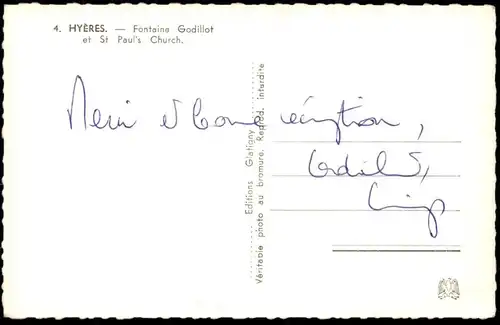 4. HYÈRES. — Fontaine Godillot
et St Paul's Church.
Merci et bonne réception,
Cordial
Editions Glatigny
Véritable photo au bromure. Reprod. interdite